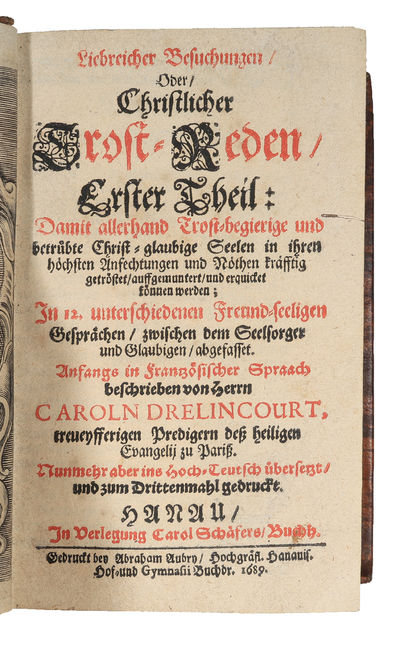 Liebreicher Besuchungen/
Oder/
Christlicher
Trost-Reden/
Erster Theil:
Damit allerhand Trost-begierige und
betrübte Christ-glaubige Seelen in ihren
höchsten Anfechtungen und Nöthen kräfftig
getröstet/auffgemuntert/und erquicket
können werden;
In 12. unterschiedenen Freund-seeligen
Gesprächen/ zwischen dem Seelsorger
und Glaubigen/abgefasset.
Anfangs in Frantzösischer Spraach
beschrieben von Herrn
CAROLN DRELINCOURT,
treueyfferigen Predigern deß heiligen
Evangelij zu Pariß.
Nunmehr aber ins Hoch-Teutsch übersetzt/
und zum Drittenmahl gedruckt.
HANAU/
In Verlegung Carol Schäfers/Buchh.
Gedruckt bey Abraham Aubry/ Hochgräfl. Hanauis.
Hof-und Gymnasii Buchdr. 1689.